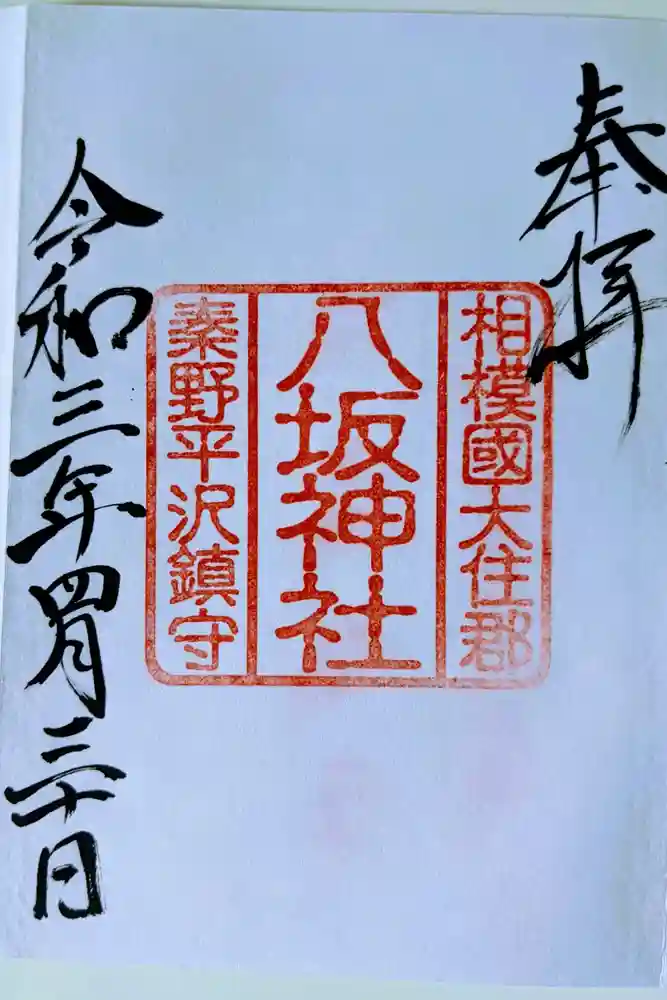 奉拝
相模國大住郡
八坂神社
秦野平沢鎮守
令和三年四月三十日